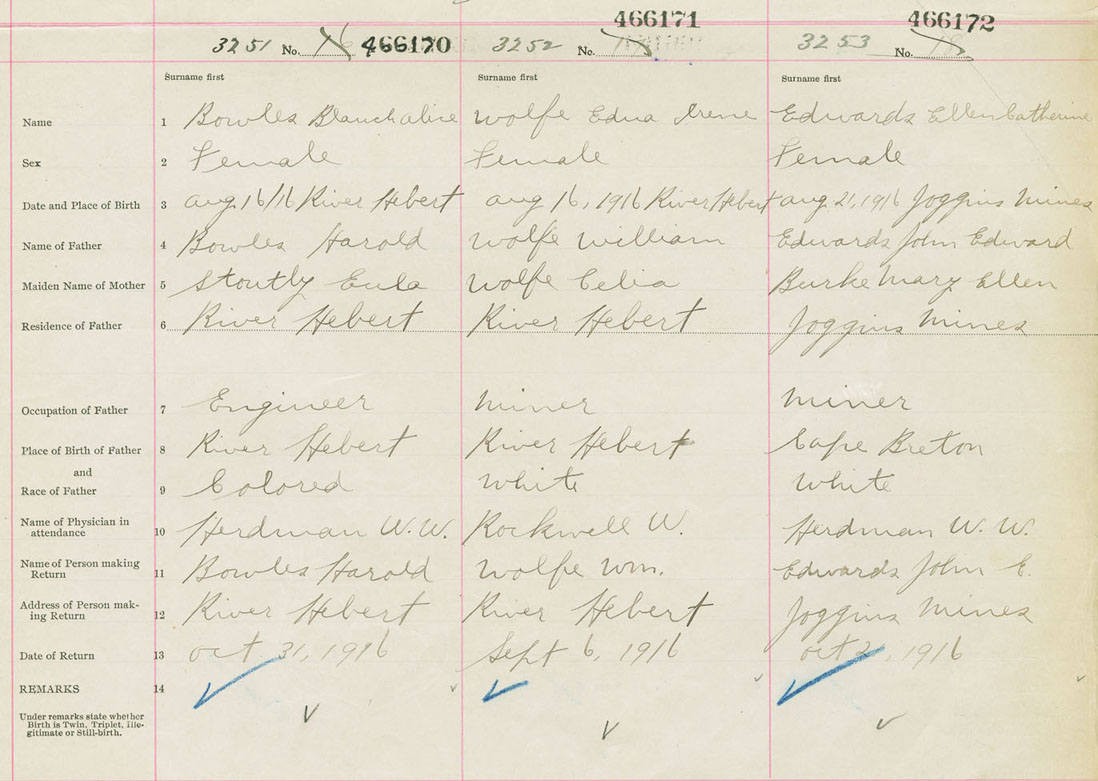 466171 466172
3251 No. 16 466170 3252 No. 3253 No. 18
Surname first Surname first Surname first
Name 1 Bowles Blanch alive Wolfe Edna Irene Edwards Ellen Catherine
Sex 2 Female Female Female
Date and Place of Birth 3 aug 16/16 River Hebert aug 16, 1916 River Hebert aug. 21, 1916 Joggins Mines
Name of Father 4 Bowles Harold Wolfe William Edwards John Edward
Maiden Name of Mother 5 Stoutly Eula Wolfe Celia Burke Mary Ellen
Residence of Father 6 River Hebert River Hebert Joggins Mines
Occupation of Father 7 Engineer Miner Miner
Place of Birth of Father 8 River Hebert River Hebert Cape Breton
and
Race of Father 9 Colored White White
Name of Physician in
attendance 10 Herdman W. W. Rockwell W. Herdman W. W.
Name of Person making
Return 11 Bowles Harold Wolfe Wm. Edwards John E.
Address of Person mak-
ing Return 12 River Hebert River Hebert Joggins Mines
Date of Return 13 oct 31, 1916 Sept 6, 1916 oct 2, 1916
REMARKS 14
Under remarks state whether
Birth is Twin, Triplet, Ille-
gitimate or Still-birth.